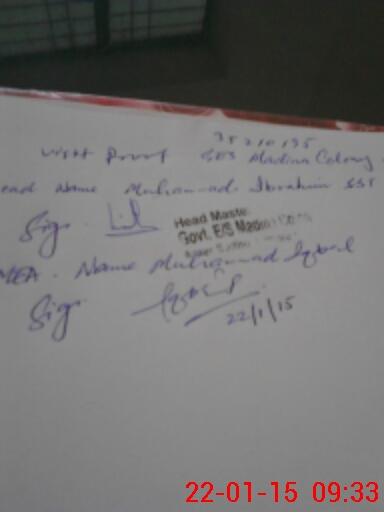 35210135
Visit Proof GES Madina Colony
ead Name Muhammad Ibrahim SST
Sig:
Head Maste
Govt. E/S Madin
MEA. Name Muhammad Iqbal
Sig:
22/1/15
22-01-15 09:33